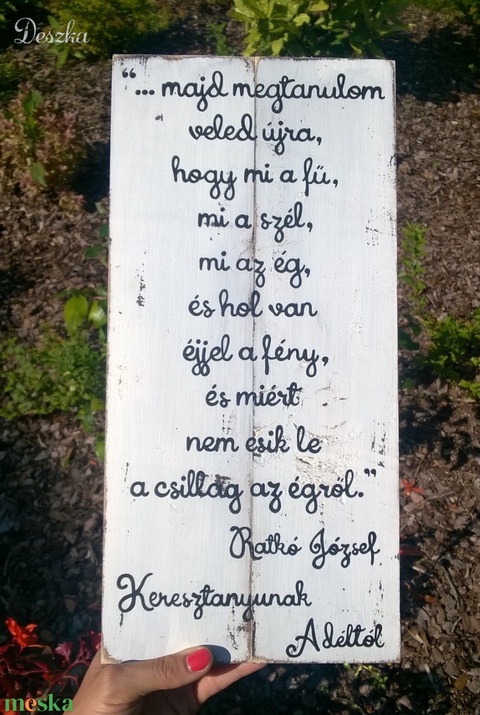 Deszka
“... majd megtanulom
veled újra,
hogy mi a fű,
mi a szél,
mi az ég,
és hol van
éjjel a fény,
és miért
nem esik le
a csillag az égről.”
Ratkó József
Keresztanyunak
Adéltól
meska